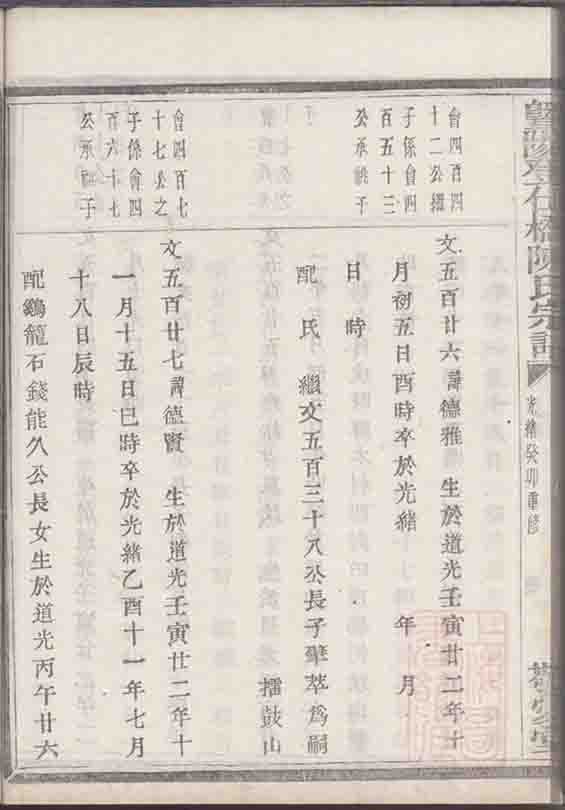 石橋陳氏宗譜
光緒癸卯重修
會四百四
十二公繼
子係會四
百五十三
公承祧子
文五百廿六諱德雅 生於道光壬寅廿二年十
月初五日酉時卒於光緒 年 月
日 時
配 氏 繼文五百三十八公長子肇萃爲嗣 擂鼓山
會四百七
十七公之
子係會四
百六十七
公承祧子
文五百廿七諱德賢 生於道光壬寅廿二年十
一月十五日巳時卒於光緒乙酉十一年七月
十八日辰時
配鷄籠石錢能久公長女生於道光丙午廿六